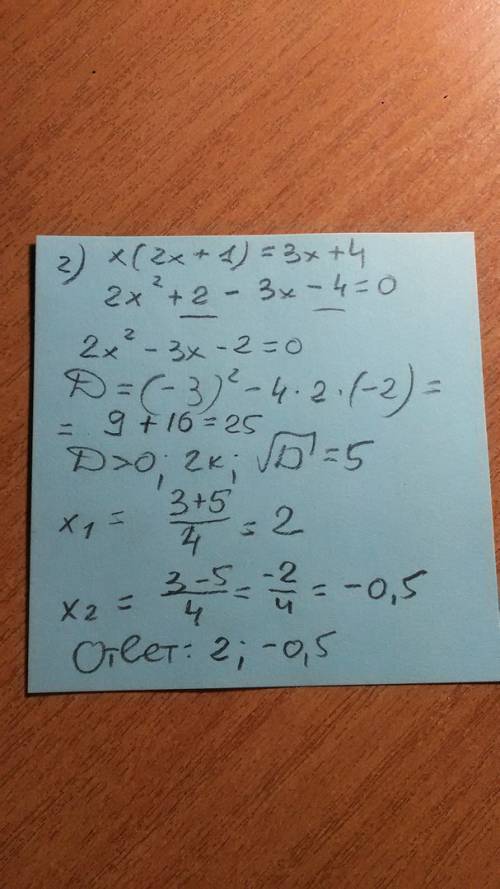 2) x(2x+1)=3x+4
2x²+2-3x-4=0
2x²-3x-2=0
D=(-3)²-4·2·(-2)=
= 9+16=25
D>0; 2к; √D=5
x₁ = (3+5)/4 = 2
x₂ = (3-5)/4 = -2/4 = -0,5
Ответ: 2; -0,5